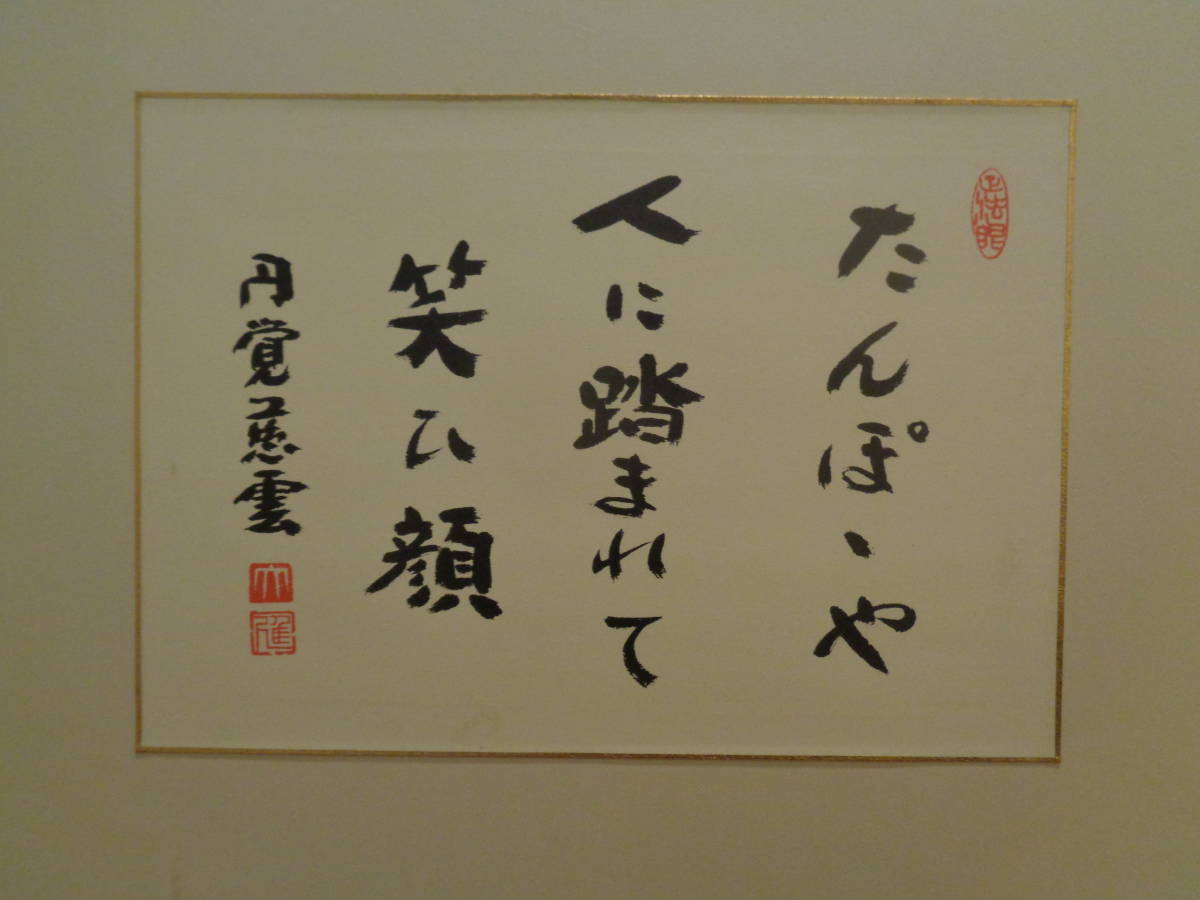 正法眼
たんぽゝや
人に踏まれて
笑ひ顔
円覚慈雲